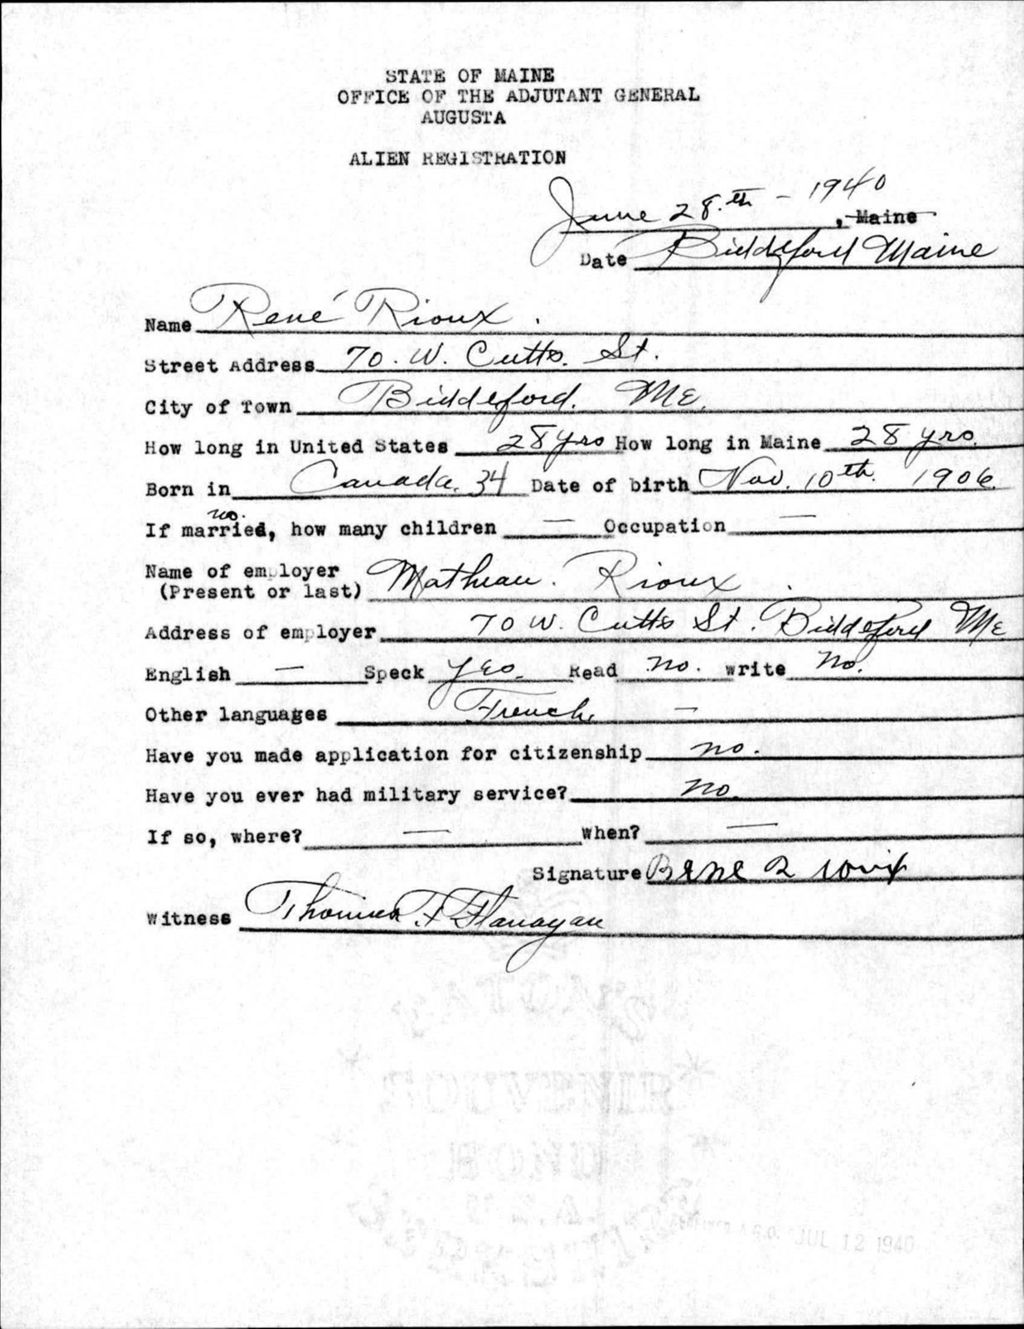 STATE OF MAINE
OFFICE OF THE ADJUTANT GENERAL
AUGUSTA
ALIEN REGISTRATION
June 28.th - 1940, Maine
Date Biddeford Maine
Name René Rioux.
Street Address 70. W. Cutts. St.
City of Town Biddeford. ME.
How long in United States 28 yrs How long in Maine 28 yrs.
Born in Canada. 34 Date of birth Nov. 10th. 1906
no.
If married, how many children — Occupation —
Name of employer
(Present or last) Matheau. Rioux.
Address of employer 70 W. Cutts St. Biddeford Me
English — Speck yes. Read no. write no.
Other languages French —
Have you made application for citizenship no.
Have you ever had military service? no.
If so, where? — When? —
Signature Rene Rioux
Witness Thomas F Flanagan
A.G.O. JUL 12 1940